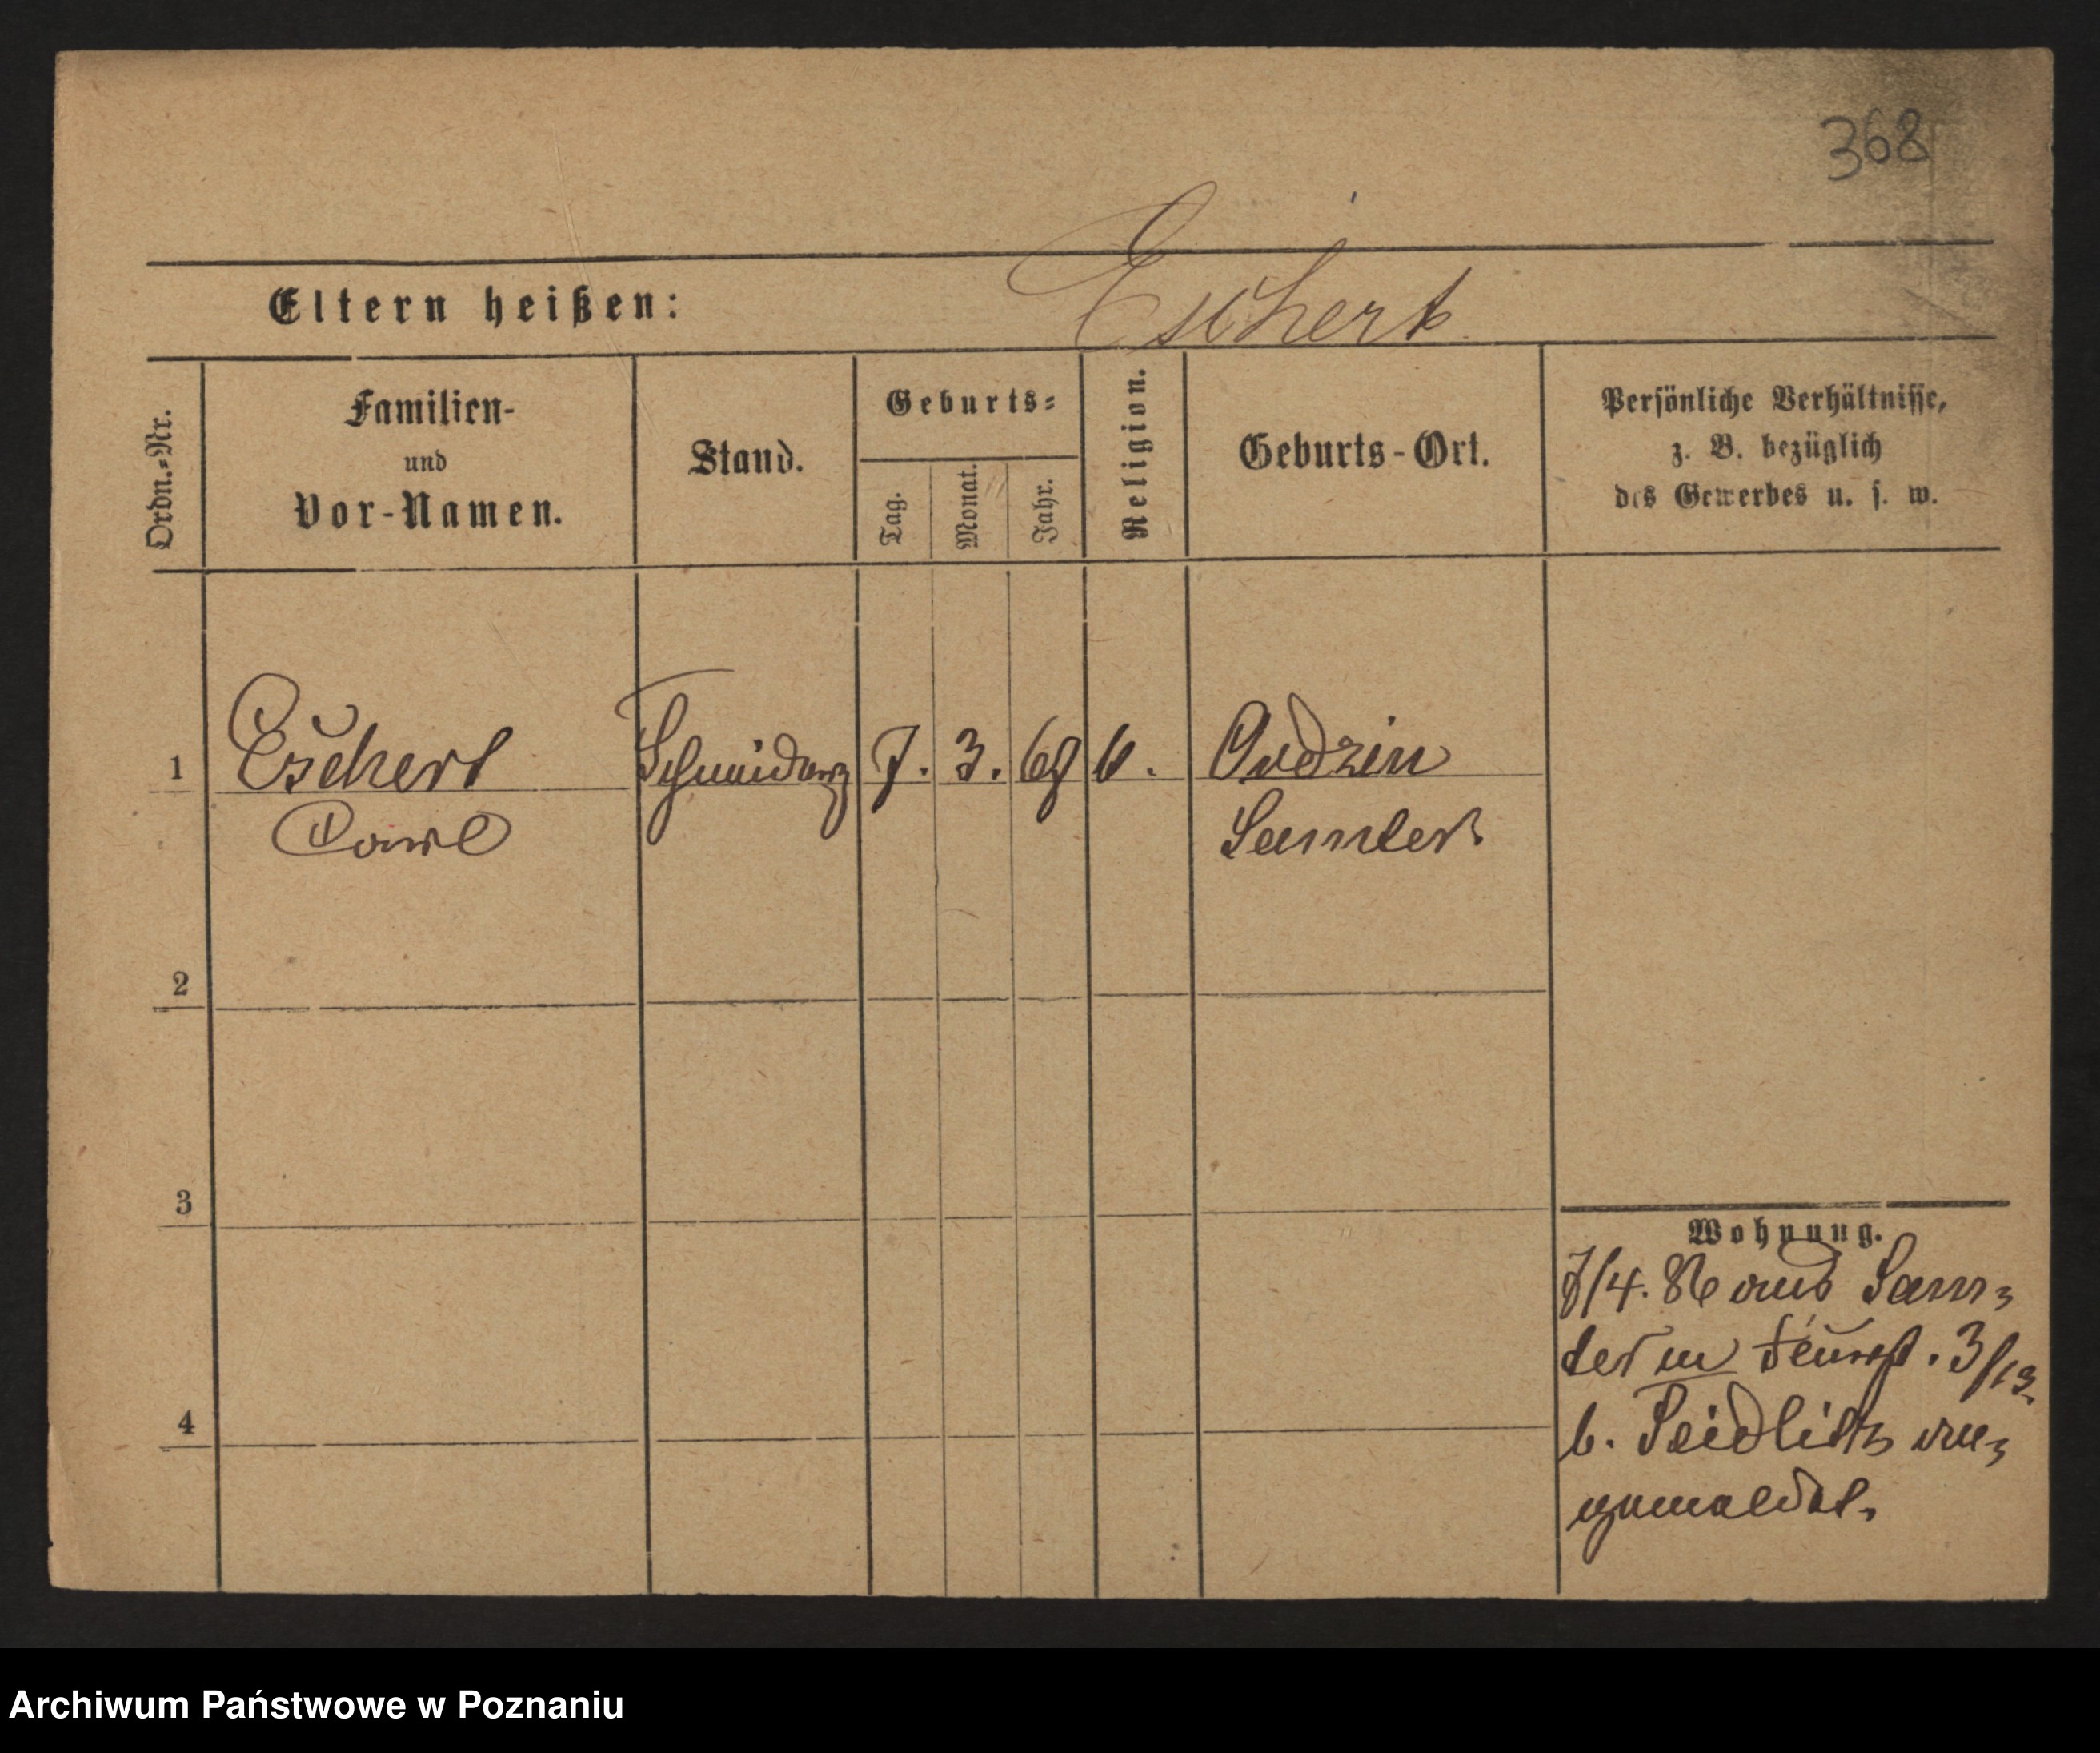 368
Eschert
Eltern heißen:
Ordn.=Nr.
Familien-
und
Vor-Namen.
Stand.
Geburts=
Tag.
Monat.
Jahr.
Religion.
Geburts-Ort.
Persönliche Verhältnisse,
z. B. bezüglich
des Gewerbes u. s. w.
1
Eschert
Carl
7. 3. 69
Ordzin
Samter
2
3
4
Wohnung.
7/4. 86 aus Sam-
ter in 3/13
b. Seidlitz an-
gemeldet.
Archiwum Państwowe w Poznaniu